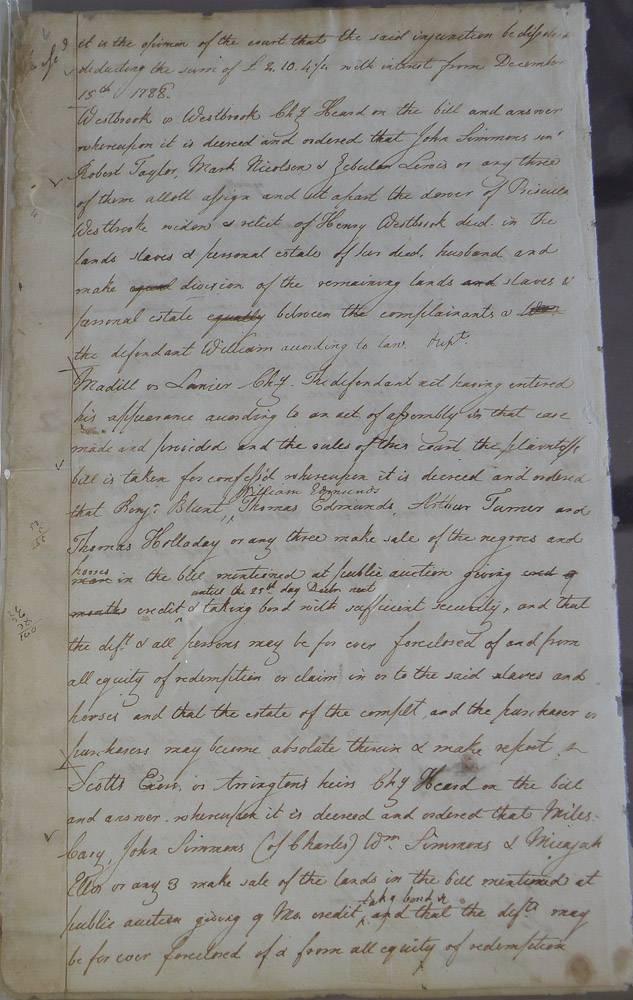 it is the opinion of the court that the said injunction be dissolved
deducting the sum of £ 2.10.4¼ with interest from December
15th 1788.
Westbrook vs Westbrook Chy Heard on the bill and answer
whereupon it is decreed and ordered that John Simmons senr
Robert Taylor, Mark Nicolson & Zebulon Lewis or any three
of them allott assign and set apart the dower of Priscilla
Westbrook widow & relict of Henry Westbrook decd. in the
lands slaves & personal estate of her decd. husband and
make equal division of the remaining lands and slaves &
personal estate equally between the complainants &
the defendant William according to law.
Madill vs Lanier Chy. The defendant not having entered
his appearance according to an act of assembly in that case
made and provided and the rules of this court the plaintiffs
bill is taken for confess'd whereupon it is decreed and ordered
William Edmunds
that Benjn. Blunt, Thomas Edmunds, Arthur Turner and
Thomas Holladay or any three make sale of the negroes and
horses
in the bill mentioned at public auction giving
untill the 25th day Decbr next
months credit & taking bond with sufficient security, and that
the deft. & all persons may be for ever foreclosed of and from
all equity of redemption or claim in or to the said slaves and
horses and that the estate of the complt. and the purchaser or
purchasers may become absolute therein & make report
Scotts Exors. vs Arringtons heirs Chy Heard on the bill
and answer. whereupon it is decreed and ordered that Miles
Cary, John Simmons (of Charles) Wm. Simmons & Micajah
Ellis or any 3 make sale of the lands in the bill mentioned at
takg bond &
public auction giving 9 Mo. credit and that the defts may
be for ever foreclosed of & from all equity of redemption